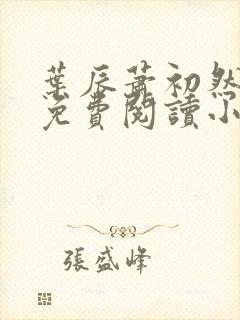 葉辰蕭初然
免費閱讀小
張盛峰